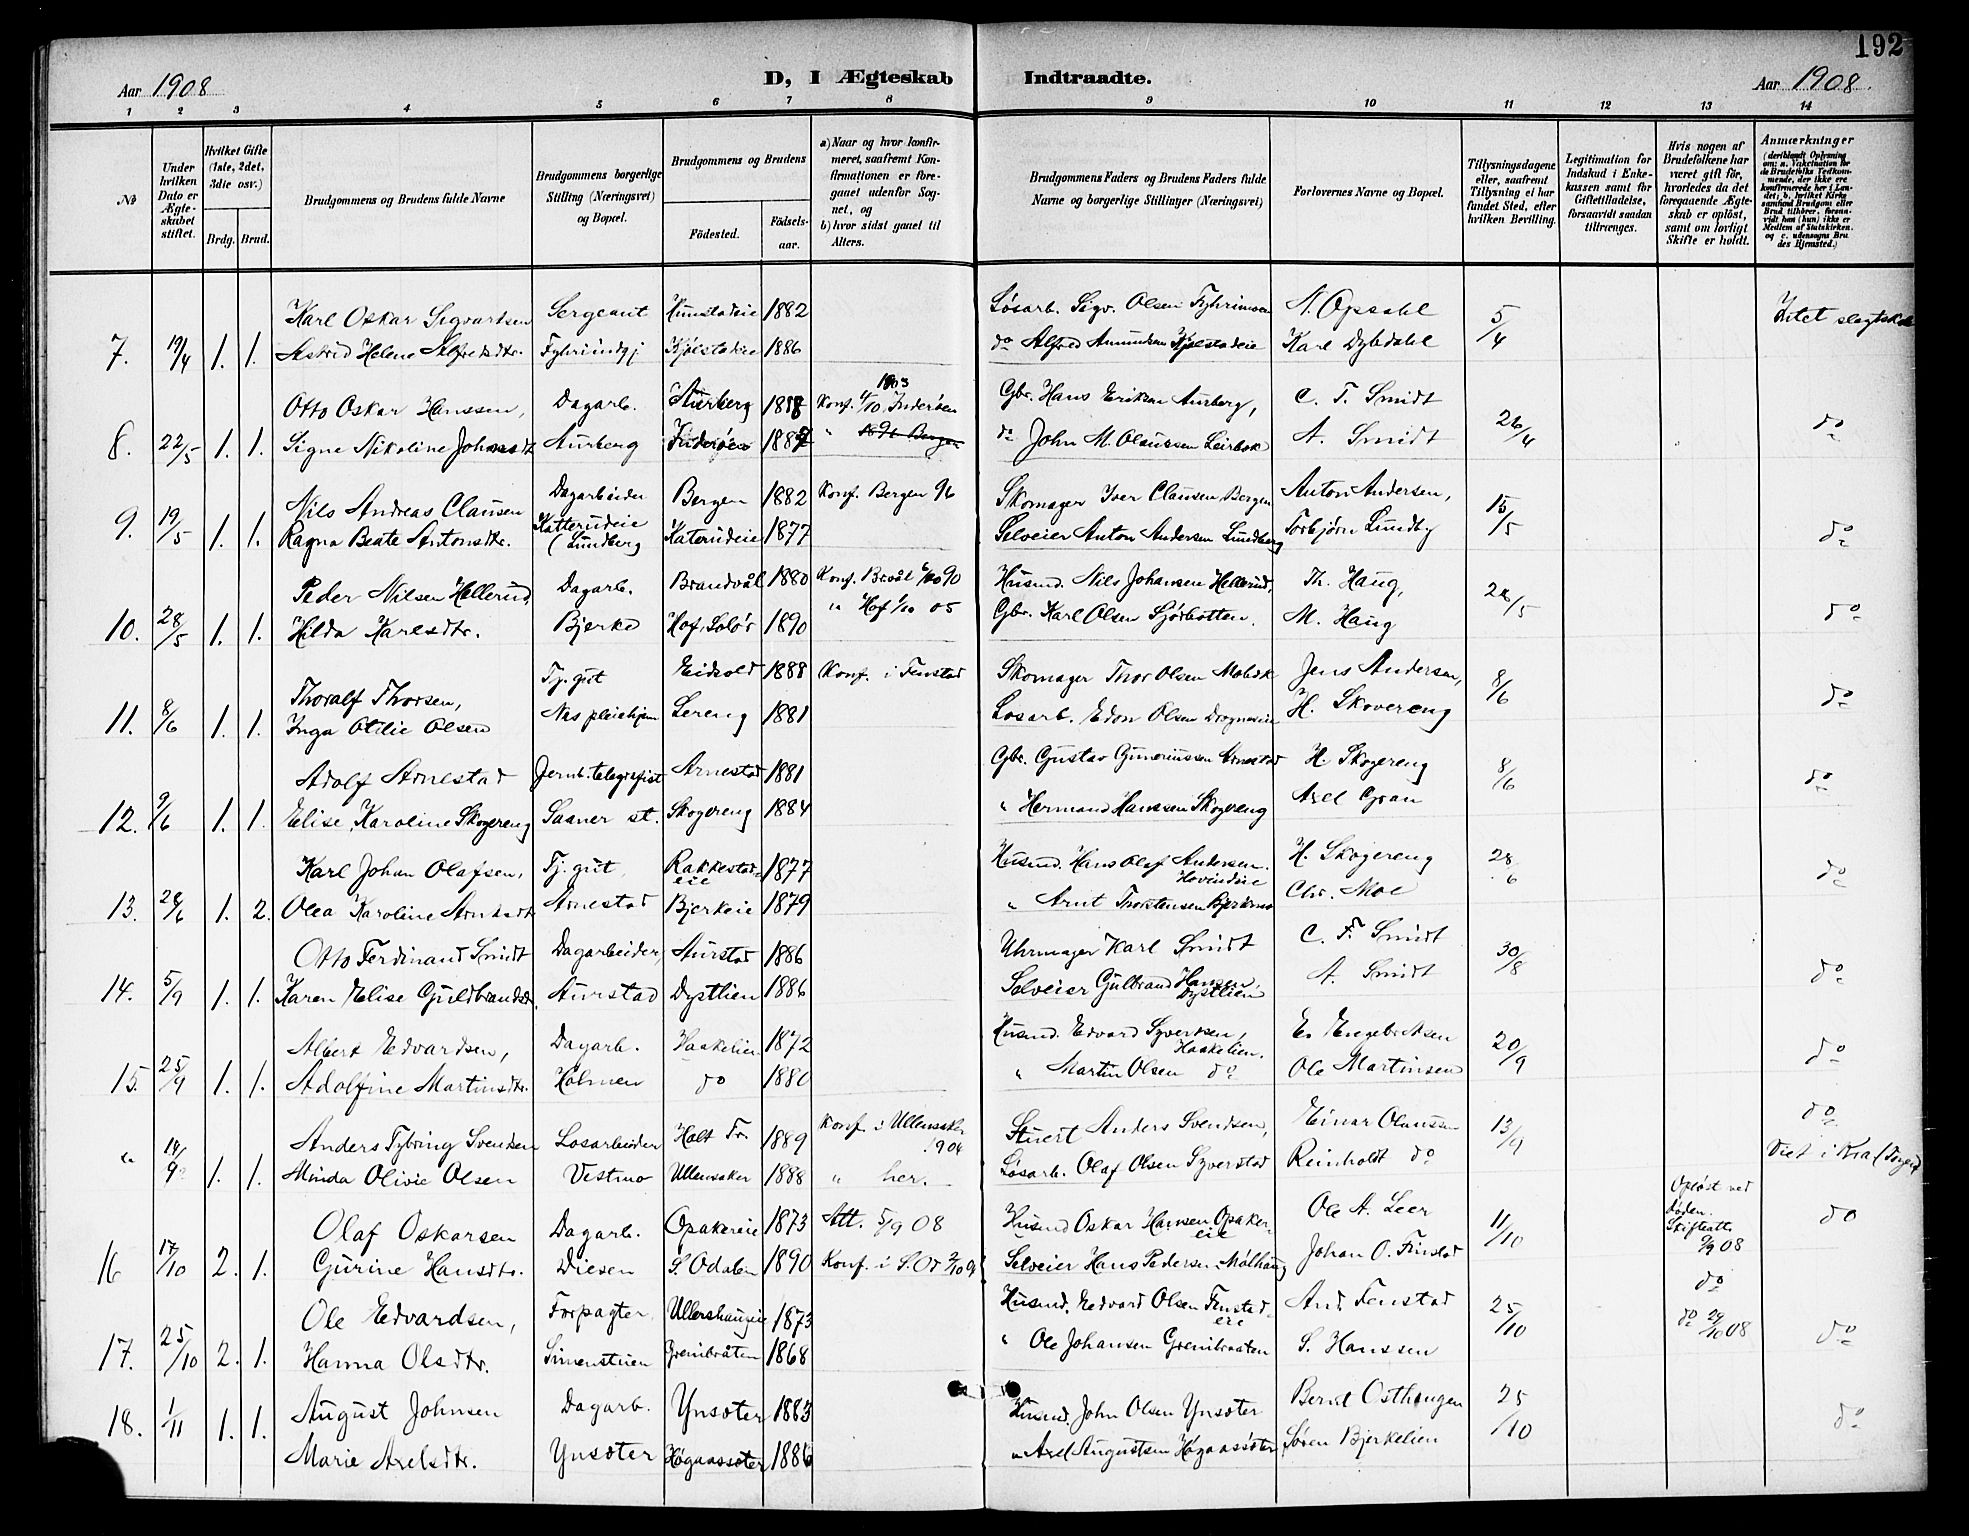 192
Aar 1908
D, I Ægteskab Indtraadte.
Aar 1908.
1 2 3 4 5 6 7 8 9 10 11 12 13 14
No
Under hvilken Dato er Ægteskabet stiftet.
Hvilket Gifte (1ste, 2det, 3die osv.)
Brdg. Brud.
Brudgommens og Brudens fulde Navne
Brudgommens borgerlige Stilling (Næringsvei) og Bopæl.
Brudgommens og Brudens
Fødested.
Fødselsaar.
a) Naar og hvor konfirmeret, saafremt Konfirmationen er foregaaet udenfor Sognet, og
b) hvor sidst gaaet til Alters.
Brudgommens Faders og Brudens Faders fulde Navne og borgerlige Stillinger (Næringsvei)
Forlovernes Navne og Bopæl.
Tillysningsdagene eller, saafremt Tillysning ei har fundet Sted, efter hvilken Bevilling.
Legitimation for Indskud i Enkekassen samt for Giftettilladelse, forsaavidt saadan tiltrænges.
Hvis nogen af Brudefolkene har været gift før, hvorledes da det foregaaende Ægteskab er opløst, samt om lovligt Skifte er holdt.
Anmærkninger
(deriblandt Oplysning om: a. Vakcination for de Brudefolks Vedkommende, der ikke ere konfirmerede her i Landet; b. hvilket Kirkesamfund Brudgom eller Brud tilhører, forsaavidt han (hun) ikke er Medlem af Statskirken. og c. udensogns Brudes Hjemsted.)
Karl Oskar Sigvartsen Sergeant 1882 Løsarb. Sigv. Olsen N. Opsahl 5/4 Intet
7. 19/4 1. 1. Astrid Helene Alfredsdtr. Kjølstadeie 1886 do Alfred Amundsen Kjølstadeie Karl Dybdahl
Otto Oskar Hanssen, Dagarb. Aurberg Konf. 4/10 1903 Inderøen Gbr. Hans Eriksen Aurberg, C. F. Smidt 26/4 do
8. 22/5 1. 1. Signe Nikoline Aurberg Inderøen " 1896 Bergen do John M. Olaussen A. Smidt
Nils Andreas Clausen Dagarbeider Bergen 1882 Konf. Bergen 96 Skomager Iver Clausen, Bergen Anton Andersen, 15/5 do
9. 19/5 1. 1. Ragna Beate Antonsdtr. Katterudeie (Lundberg Katerudeie 1877 Selveier Anton Andersen Lundberg Torbjørn Lundby
Peder Nilsen Hellerud Dagarb. Brandvål 1880 Husmd. Nils Johansen Hellerud, Th. Haug, do
10. 28/5 1. 1. Hilda Karlsdtr. Bjerke Hof, Solør 1890 " Hof 1/10 05 Gbr. Karl Olsen Sjørbotten. M. Haug
Thoralf Thorsen, Tj.gut Eidsvold 1888 Konf. i Fenstad Skomager Thor Olsen Jens Andersen, 8/6 do
11. 8/6 1. 1. Inga Otilie Olsen Lereng 1881 Løsarb. Edon Olsen H. Skovereng
Adolf Arnestad Jernb.telegrafist Arnestad 1881 Gbr. Gustav Gunerius­sen Arnestad H. Skogereng 8/6 do
12. 9/6 1. 1. Elise Karoline Skogereng Saaner st. Skogereng 1884 " Hermand Hanssen Skogereng Axel Gran
Karl Johan Olafsen, Tj.gut, Rakkestadeie 1877 Husmd. Hans Olaf Andersen. Hovindeie H. Skogereng 28/6 do
13. 28/6 1. 2. Olea Karoline Arntsdtr Arnestad Bjerkeie 1879 " Arnt Thorstensen Chr. Moe
Otto Ferdinand Smidt Dagarbeider, Aurstad 1886 Uhrmager Karl Smidt C. F. Smidt 30/8 do
14. 5/9 1. 1. Karen Elise Guldbrandsdtr. Aurstad Dystlien 1886 Selveier Gulbrand Hansen, Dystlien A. Smidt
Albert Edvardsen, Dagarb. Haakelien 1872 Husmd. Edvard Syvertsen, Haakelien. E. Engebretsen 20/9 do
15. 25/9 1. 1. Adolfine Martinsdtr. Holmen do 1880 " Martin Olsen do Ole Martinsen
Anders Tybring Svendsen Løsarbeider Holt Tr. 1889 Konf. i Ullensaker 1904 Anders Svendsen, Einar Olaussen 13/9 do
" 14/9 1. 1. Minda Olivie Olsen Vestmo Ullensaker 1888 " her. Løsarb. Olaf Olsen Syverstad Reinholdt do Viet i Kra
Olaf Oskarsen Dagarb. Opakereie 1873 Alt. 5/9 08 Husmd Oskar Hansen Opakereie Ole A. Leer 11/10 Opløst ved døden. Skifteatt. 9/9 08 do
16 17/10 2. 1. Gurine Hansdtr. Diesen S. Odalen 1890 Selveier Hans Pedersen Mølhaug Johan O. Finstad do
Ole Edvardsen, Forpagter, Ullershaugeie 1873 Husmd. Edvard Olsen Fenstadeie And. Fenstad 25/10 do 29/10 08
17. 25/10 2. 1. Hanna Olsdtr. Simenstuen Grenibråten 1868 " Ole Johansen Grenibraaten S. Hanssen do
August Johnsen Dagarb. Ynsæter 1883 Husmd. John Olsen Ynsæter Bernt Osthaugen 25/10 do
18. 1/11 1. 1. Marie Axelsdtr. Ynsæter Høgaassæter 1886 " Axel Augustsen Høgaassæter Søren Bjerkelien